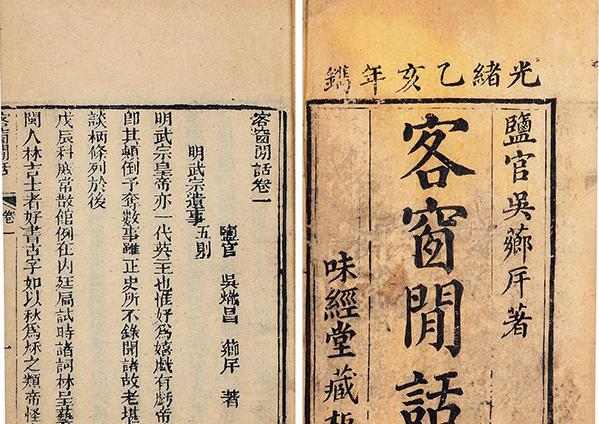 光緒乙亥年鐫
鹽官吳薌厈著
客窗閒話
味經堂藏板
客窗閒話卷一
鹽官 吳熾昌 薌厈 著
明武宗遺事 五則
明武宗皇帝亦一代英主也惟好爲嬉戲有戲帝
卽其顛倒予奪數事雖正史所不錄聞諸故老堪
談柄條列於後
戊辰科庶常散館例在內廷扃試時諸詞林呈藝
閩人林吉士者好書古字如以秋爲秌之類帝怪
客窗閒話 卷一 一